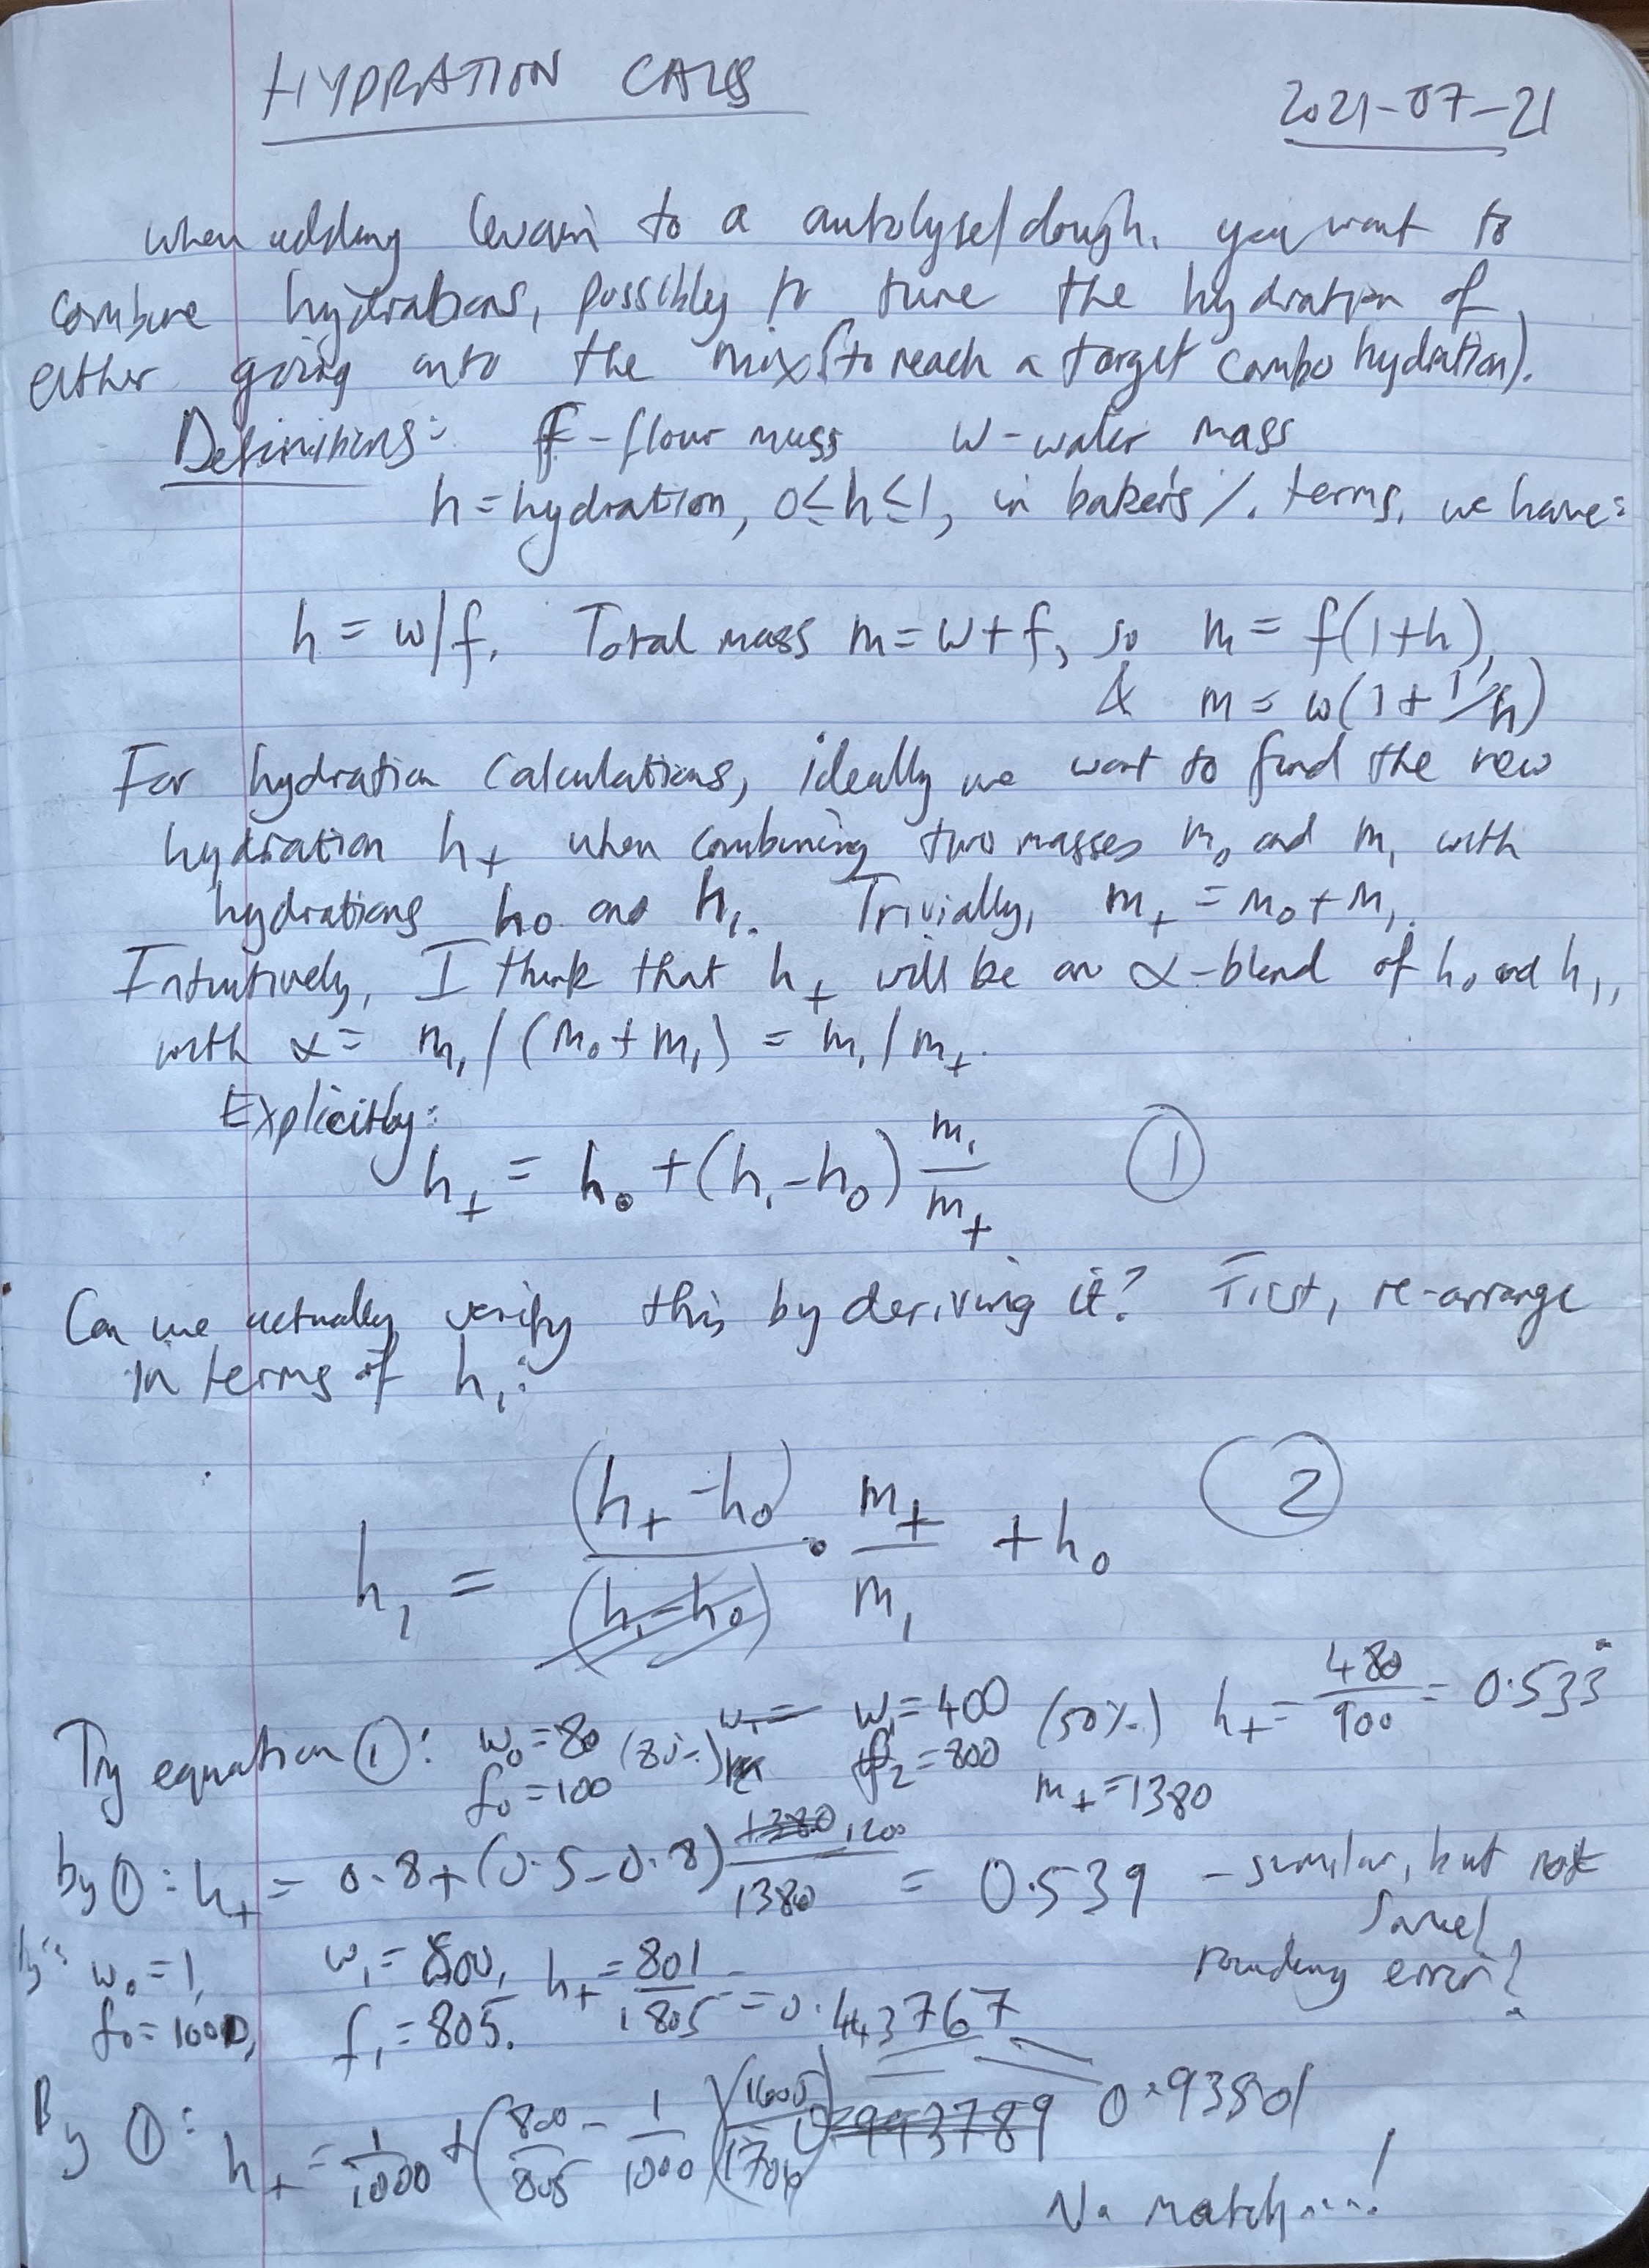 HYDRATION CALCS
2021-07-21
when adding levain to a autolyse/dough. you want to
combine hydrations, possibly to tune the hydration of
either going into the mix (to reach a target combo hydration).
Definitions: f - flour mass w - water mass
h = hydration, 0≤h≤1, in baker's %. terms, we have:
h = w/f. Total mass m = w+f, so m = f(1+h),
& m = w(1+1/h)
For hydration calculations, ideally we want to find the new
hydration h₊ when combining two masses m₀ and m₁ with
hydrations h₀ and h₁. Trivially, m₊ = m₀+m₁.
Intuitively, I think that h₊ will be an α-blend of h₀ and h₁,
with α = m₁/(m₀+m₁) = m₁/m₊.
Explicitly:
h₊ = h₀ + (h₁-h₀) m₁/m₊ ①
Can we actually verify this by deriving it? First, re-arrange
in terms of h₁:
h₁ = (h₊-h₀)/(h₁-h₀) · m₊/m₁ + h₀ ②
Try equation ①: w₀=80 (80%) w₁= w₁=400 (50%) h₊ = 480/900 = 0.533
f₀=100 f₂=800 m₊=1380
by ①: h₊ = 0.8+(0.5-0.8) 1200/1380 = 0.539 - similar, but not
same!
rounding error?
w₀=1, w₁=800, h₊ = 801/1805 = 0.443767
f₀=1000, f₁=805.
By ①: h₊ = 1/1000 + (800/805 - 1/1000)(1605/1706) 0.993789 0.93501
No match...!